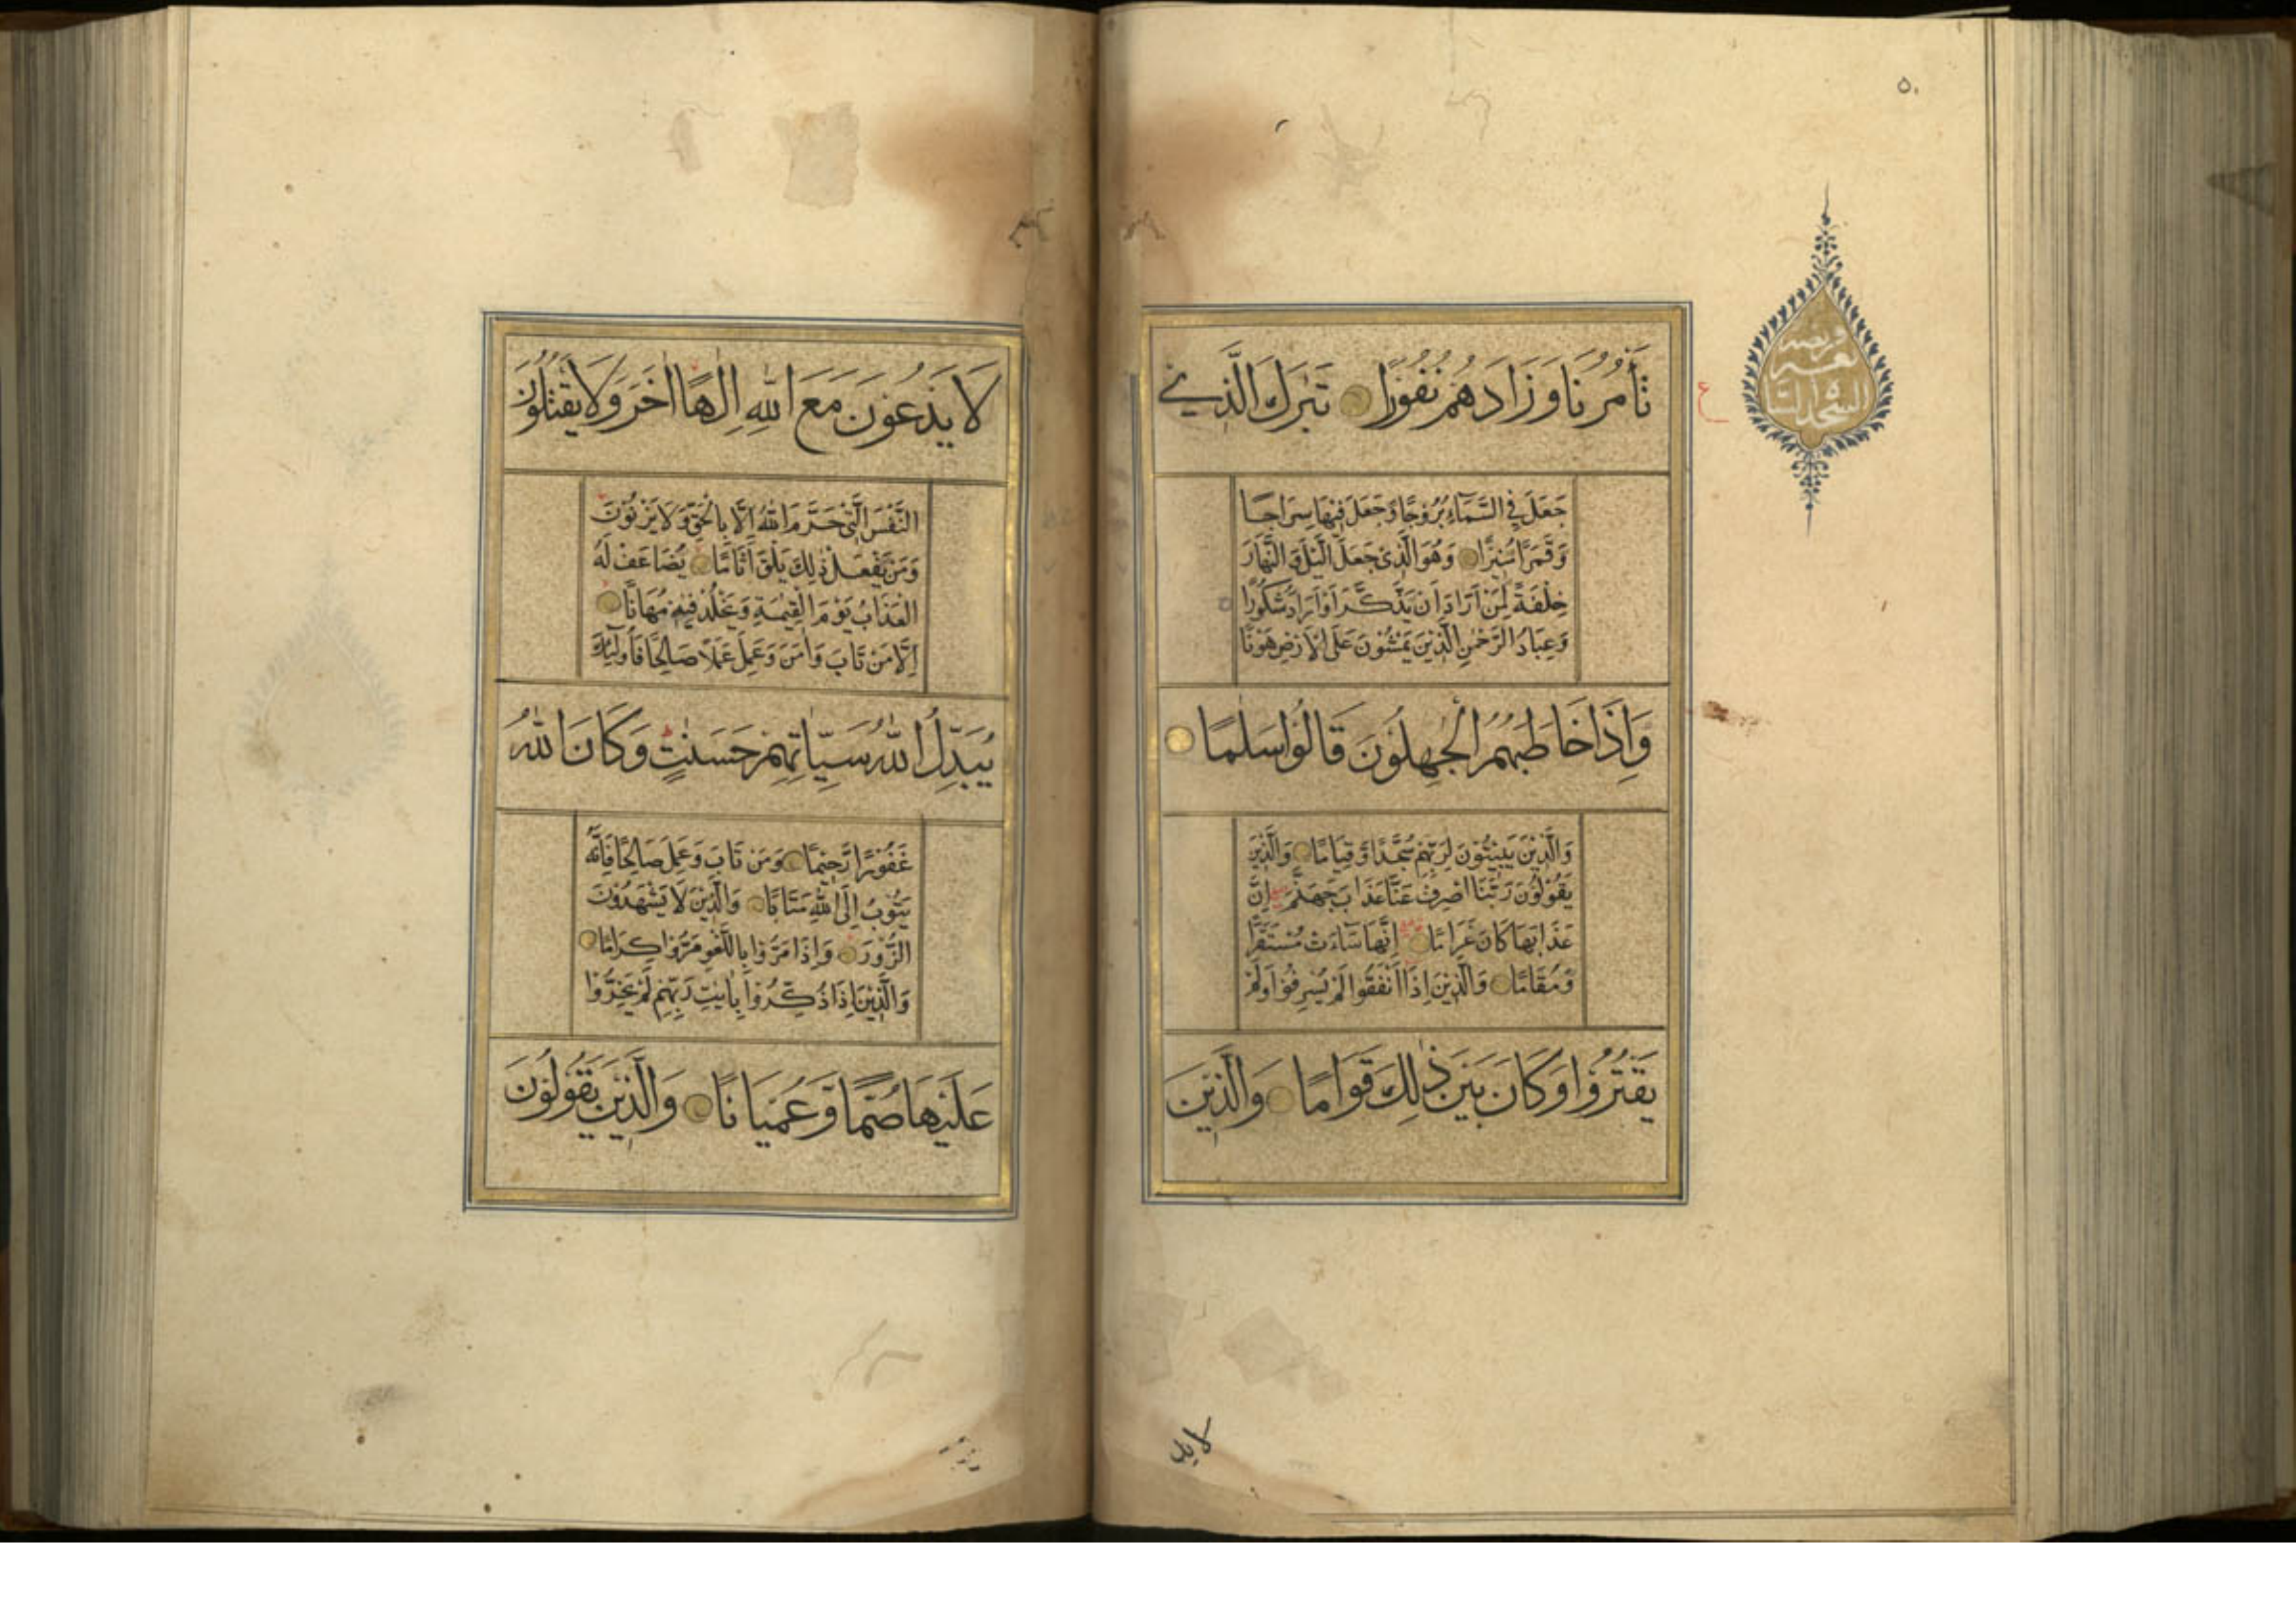 ٥٠
السجدة
ع
تَأْمُرُنَا وَزَادَهُمْ نُفُورًا تَبٰرَكَ الَّذِي
جَعَلَ فِي السَّمَآءِ بُرُوجًا وَجَعَلَ فِيْهَا سِرَاجًا
وَقَمَرًا مُنِيْرًا وَهُوَ الَّذِيْ جَعَلَ الَّيْلَ وَالنَّهَارَ
خِلْفَةً لِمَنْ اَرَادَ اَنْ يَذَّكَّرَ اَوْ اَرَادَ شُكُوْرًا
وَعِبَادُ الرَّحْمٰنِ الَّذِيْنَ يَمْشُوْنَ عَلَى الْاَرْضِ هَوْنًا
وَاِذَا خَاطَبَهُمُ الْجٰهِلُوْنَ قَالُوْا سَلٰمًا
وَالَّذِيْنَ يَبِيْتُوْنَ لِرَبِّهِمْ سُجَّدًا وَّقِيَامًا وَالَّذِيْنَ
يَقُوْلُوْنَ رَبَّنَا اصْرِفْ عَنَّا عَذَابَ جَهَنَّمَ اِنَّ
عَذَابَهَا كَانَ غَرَامًا اِنَّهَا سَآءَتْ مُسْتَقَرًّا
وَمُقَامًا وَالَّذِيْنَ اِذَا اَنْفَقُوا لَمْ يُسْرِفُوْا وَلَمْ
يَقْتُرُوْا وَكَانَ بَيْنَ ذٰلِكَ قَوَامًا وَالَّذِيْنَ
لا يد
لَا يَدْعُوْنَ مَعَ اللّٰهِ اِلٰهًا اٰخَرَ وَلَا يَقْتُلُوْنَ
النَّفْسَ الَّتِيْ حَرَّمَ اللّٰهُ اِلَّا بِالْحَقِّ وَلَا يَزْنُوْنَ
وَمَنْ يَفْعَلْ ذٰلِكَ يَلْقَ اَثَامًا يُضَاعَفْ لَهُ
الْعَذَابُ يَوْمَ الْقِيٰمَةِ وَيَخْلُدْ فِيْهٖ مُهَانًا
اِلَّا مَنْ تَابَ وَاٰمَنَ وَعَمِلَ عَمَلًا صَالِحًا فَاُولٰئِكَ
يُبَدِّلُ اللّٰهُ سَيِّاٰتِهِمْ حَسَنٰتٍ وَكَانَ اللّٰهُ
غَفُوْرًا رَّحِيْمًا وَمَنْ تَابَ وَعَمِلَ صَالِحًا فَاِنَّهُ
يَتُوْبُ اِلَى اللّٰهِ مَتَابًا وَالَّذِيْنَ لَا يَشْهَدُوْنَ
الزُّوْرَ وَاِذَا مَرُّوْا بِاللَّغْوِ مَرُّوْا كِرَامًا
وَالَّذِيْنَ اِذَا ذُكِّرُوْا بِاٰيٰتِ رَبِّهِمْ لَمْ يَخِرُّوْا
عَلَيْهَا صُمًّا وَّعُمْيَانًا وَالَّذِيْنَ يَقُوْلُوْنَ